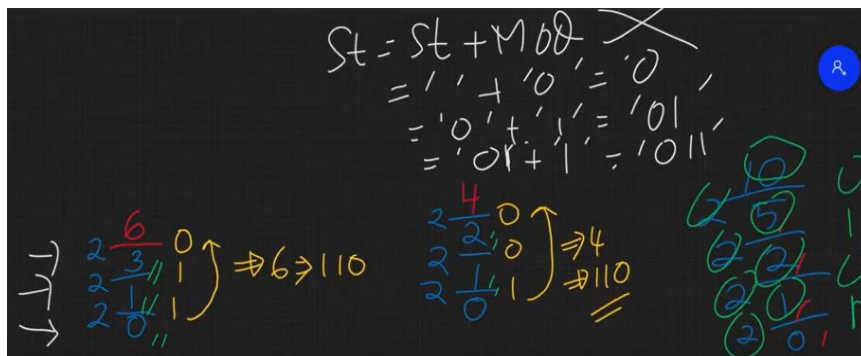 St = St + MOD
= ' ' + '0' = '0
= '0' + '1' = '01'
= '01 + '1' = '011'
2 6 0
2 3 1
2 1 1
0
⇒ 6 ⇒ 110
2 4 0
2 2 0
2 1 1
0
⇒ 4
⇒ 110
2 10
2 5 1
2 2
2 1
0